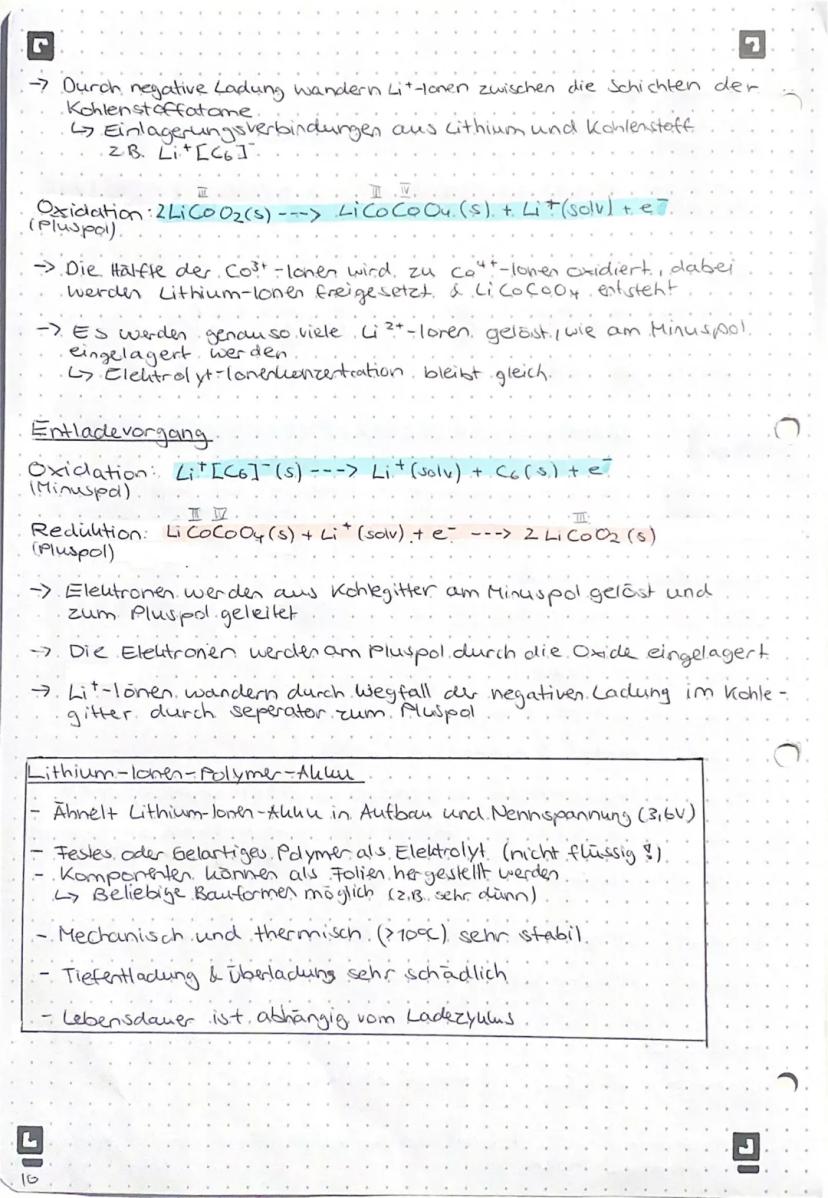 → Durch negative Ladung wandern Li⁺-Ionen zwischen die Schichten der
Kohlenstoffatome
↳ Einlagerungsverbindungen aus Lithium und Kohlenstoff
z.B. Li⁺[C₆]⁻
III II IV
Oxidation: 2LiCoO₂(s) ---> LiCoCoO₄(s) + Li⁺(solv) + e⁻
(Pluspol)
→ Die Hälfte der Co³⁺-Ionen wird zu Co⁴⁺-Ionen oxidiert, dabei
werden Lithium-Ionen freigesetzt & LiCoCoO₄ entsteht
→ Es werden genauso viele Li²⁺-Ionen gelöst, wie am Minuspol
eingelagert werden
↳ Elektrolyt-Ionenkonzentration bleibt gleich.
Entladevorgang
Oxidation: Li⁺[C₆]⁻(s) ---> Li⁺(solv) + C₆(s) + e⁻
(Minuspol)
III IV III
Reduktion: LiCoCoO₄(s) + Li⁺(solv) + e⁻ ---> 2 LiCoO₂(s)
(Pluspol)
→ Elektronen werden aus Kohlegitter am Minuspol gelöst und
zum Pluspol geleitet
→ Die Elektronen werden am Pluspol durch die Oxide eingelagert
→ Li⁺-Ionen wandern durch Wegfall der negativen Ladung im Kohle-
gitter durch seperator zum Pluspol
Lithium-Ionen-Polymer-Akku
- Ähnelt Lithium-Ionen-Akku in Aufbau und Nennspannung (3,6V)
- Festes oder Gelartiges Polymer als Elektrolyt (nicht flüssig!)
- Komponenten können als Folien hergestellt werden
↳ Beliebige Bauformen möglich (z.B. sehr dünn)
- Mechanisch und thermisch (>10°C) sehr stabil
- Tiefentladung & Überladung sehr schädlich
- Lebensdauer ist abhängig vom Ladezyklus
10